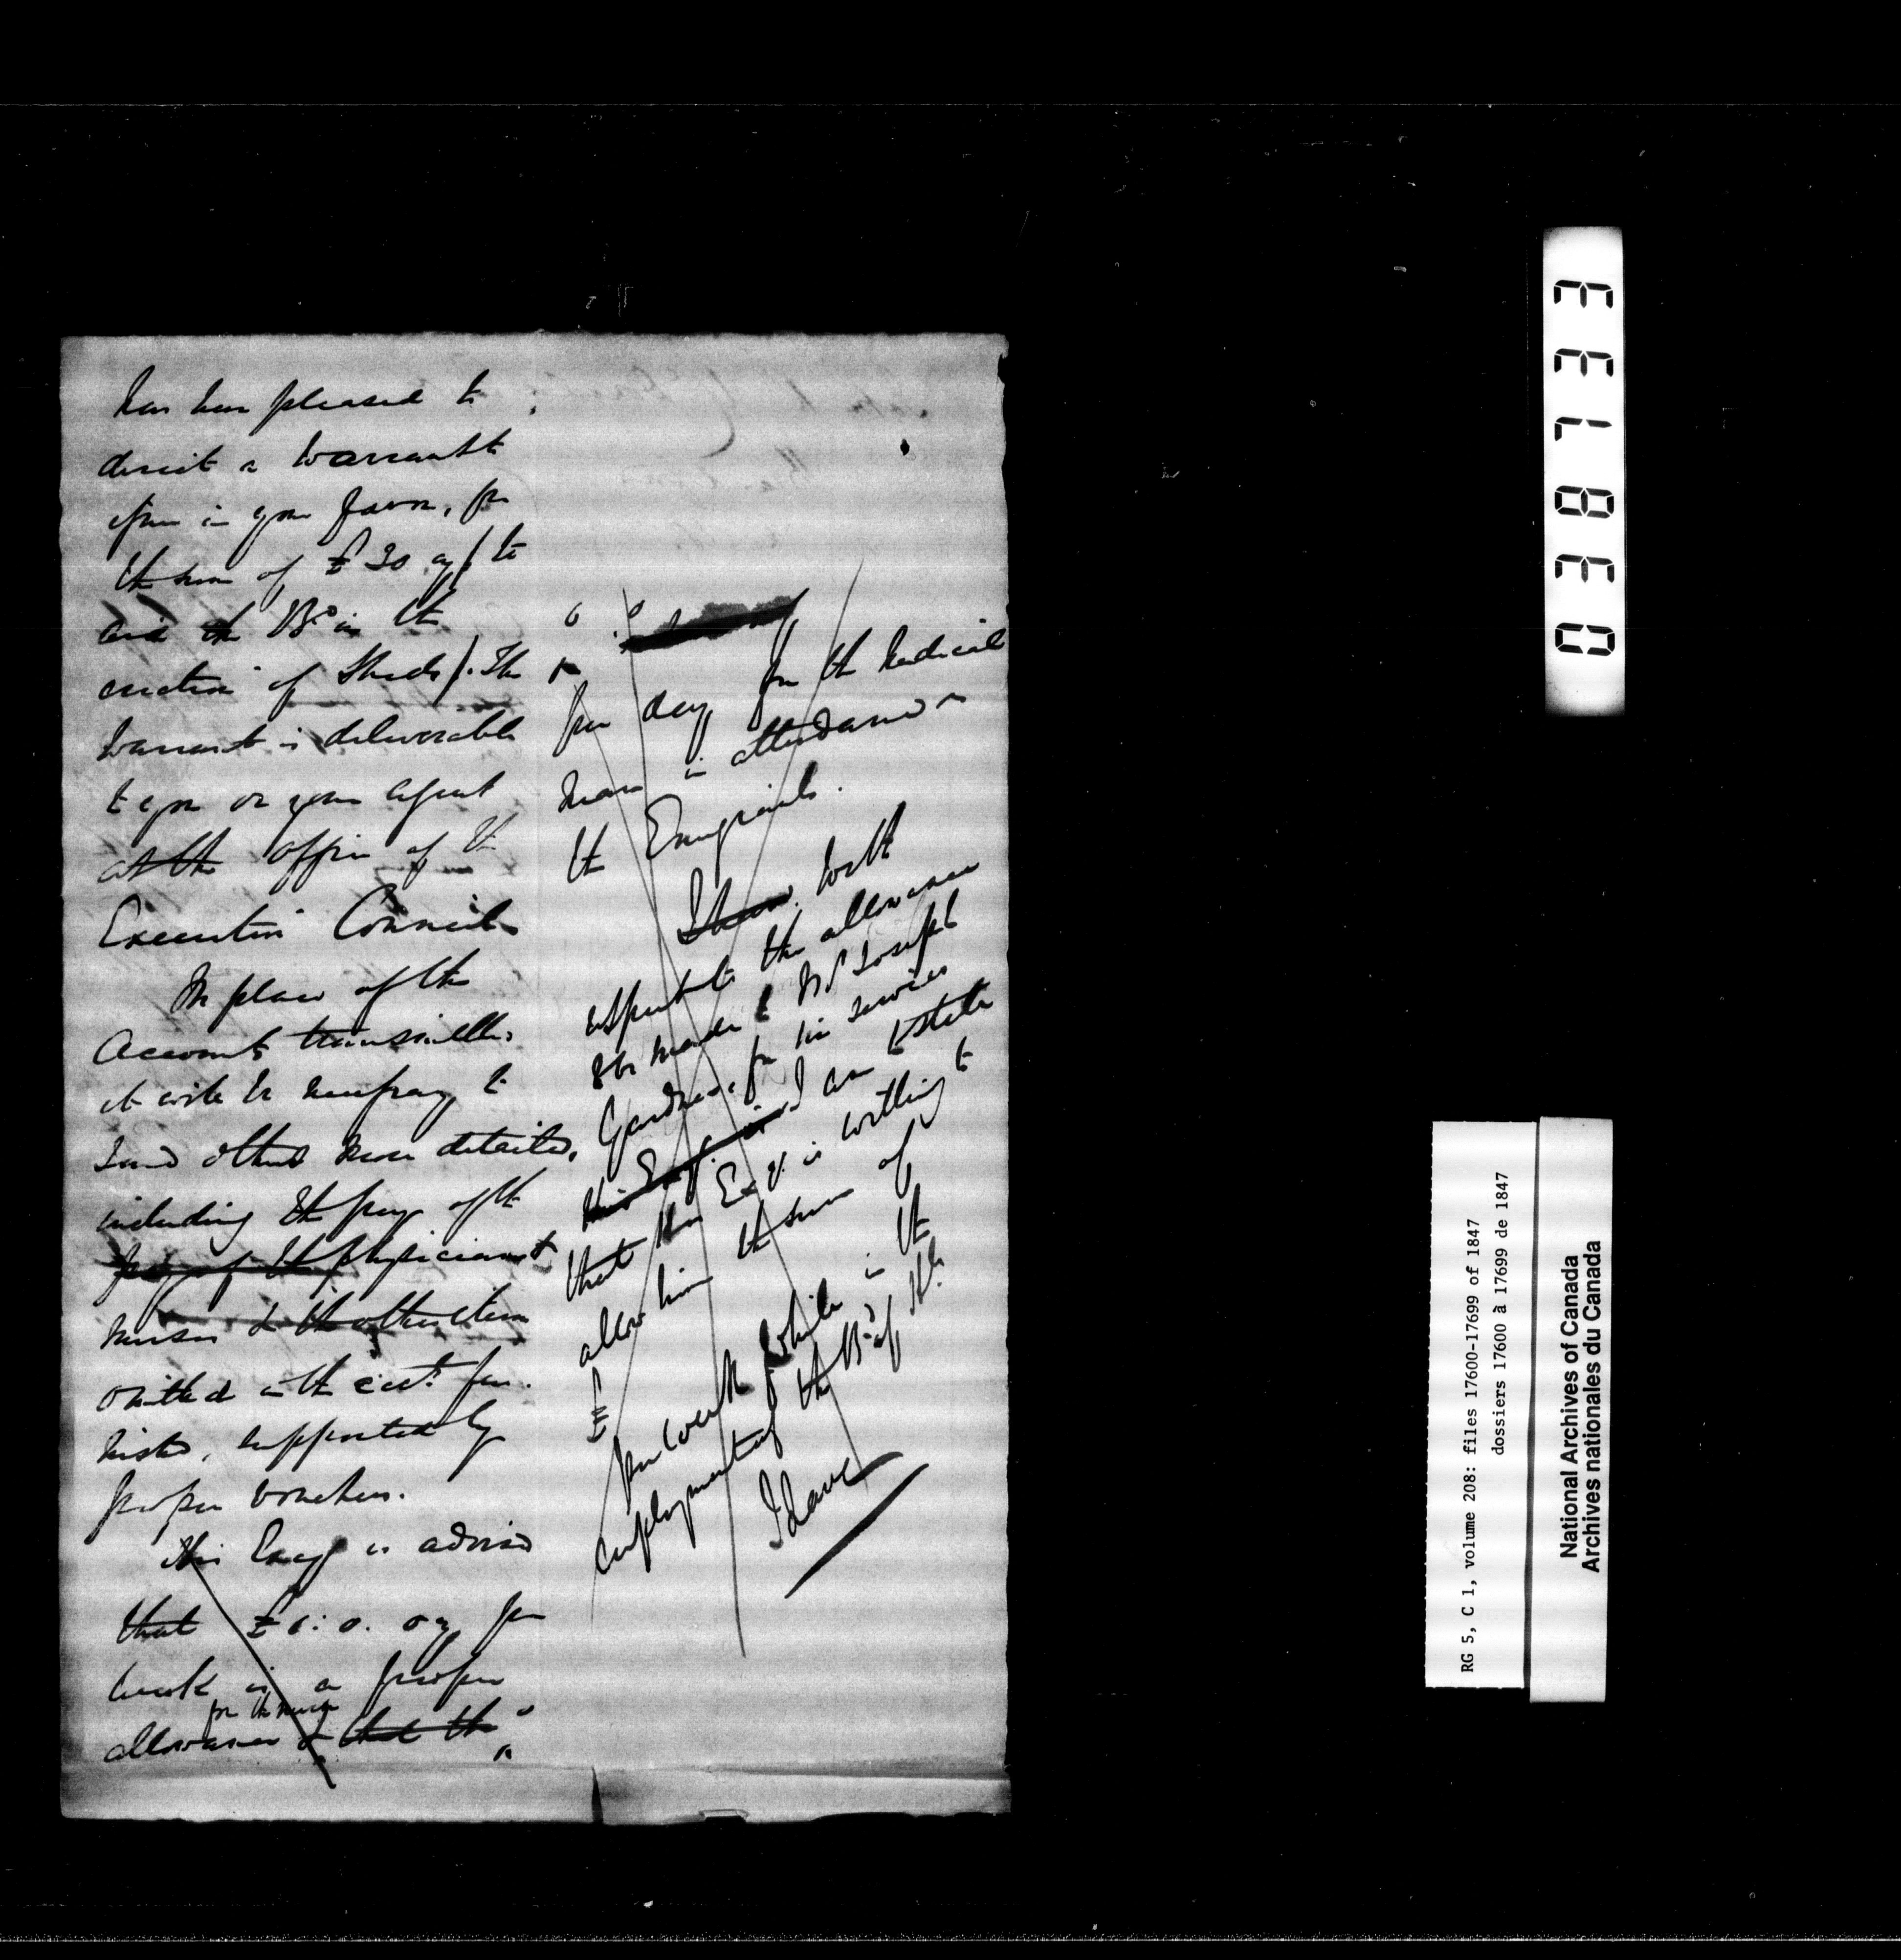 has been pleased to
direct a Warrant to
issue in your favor, for
the sum of £30 cy/ to
aid the Bd. in the
erection of Sheds/. The
Warrant is deliverable
to you or your agent
at the Office of the
Executive Council
In place of the
Accounts transmitted
it will be necessary to
send others more detailed,
including the pay of the
pay of the physicians &
nurses & the other items
omitted in the acct. fur-
nished, supported by
proper vouchers.
His Excy is advised
that £1: 0. 0 cy per
week is a proper
for the nurse
allowance & that the
per day for the Medical
man in attendance on
the Emigrants.
I have. With
respect to the allowance
to be made to Mr Joseph
Gardner, for his services
His Excy. is I am to state
that His Exy. is willing to
allow him the sum of
£
per week while in the
employment of the Bd. of Hh.
I have
RG 5, C 1, volume 208: files 17600-17699 of 1847
dossiers 17600 à 17699 de 1847
National Archives of Canada
Archives nationales du Canada